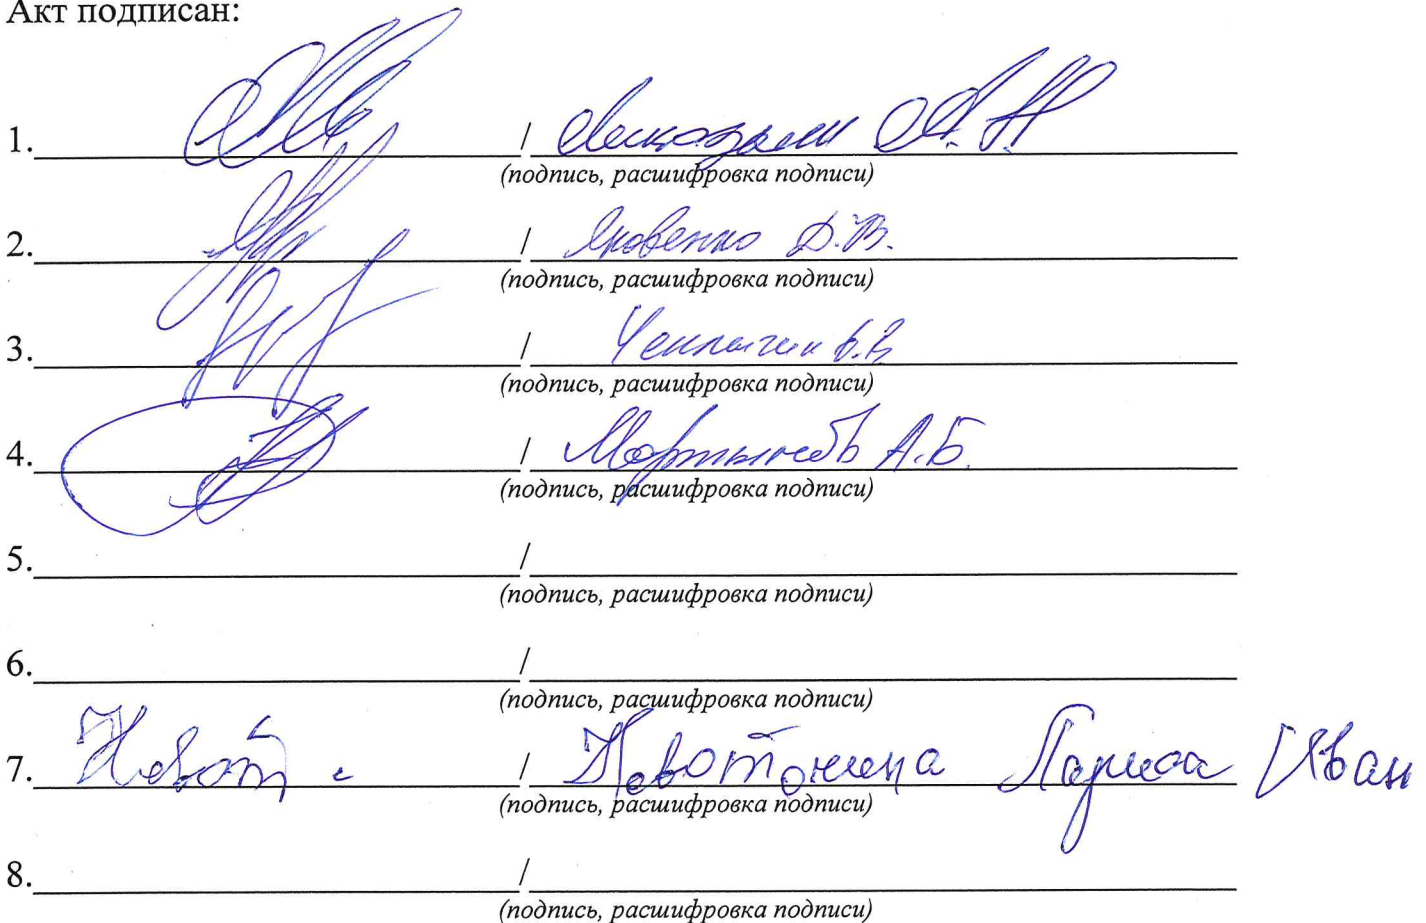 Акт подписан:
1. / А. Н
(подпись, расшифровка подписи)
2. / Яковенко Д.В.
(подпись, расшифровка подписи)
3. / Чеплыгин В.В
(подпись, расшифровка подписи)
4. / Мартыновъ А.Б.
(подпись, расшифровка подписи)
5. /
(подпись, расшифровка подписи)
6. /
(подпись, расшифровка подписи)
7. / Лариса Иван
(подпись, расшифровка подписи)
8. /
(подпись, расшифровка подписи)